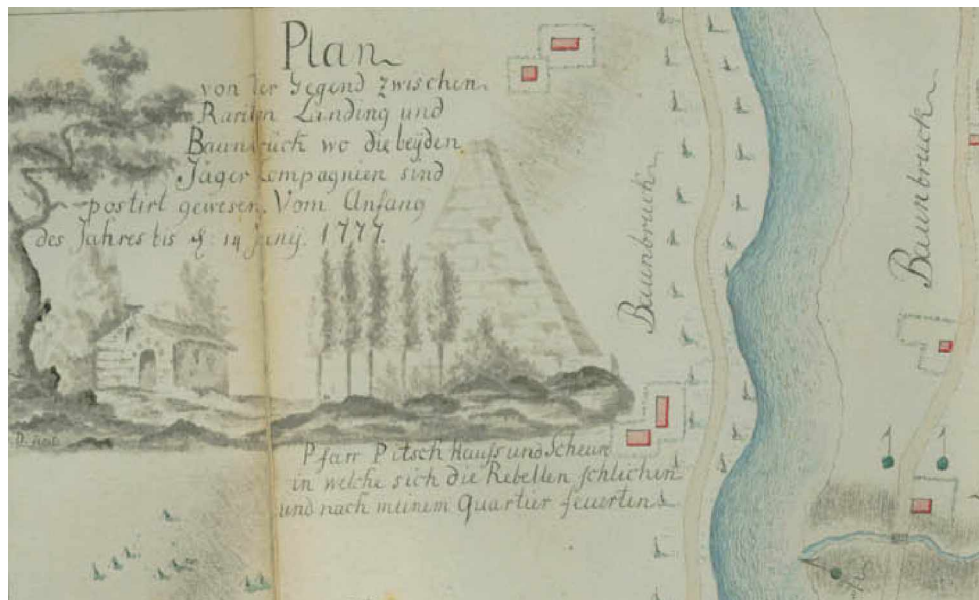 Plan
von der Gegend zwischen
Rariton Landing und
Baunbrück wo die beÿden
Jäger Compagnien sind
postirt gewesen. Vom Anfang
des Jahres bis d: 14 Junÿ. 1777.
Baunbruck
Baunbruck
Pfarr Pitsch Hauss und Scheur
in welche sich die Rebellen schlichen
und nach meinem Quartier feuerten